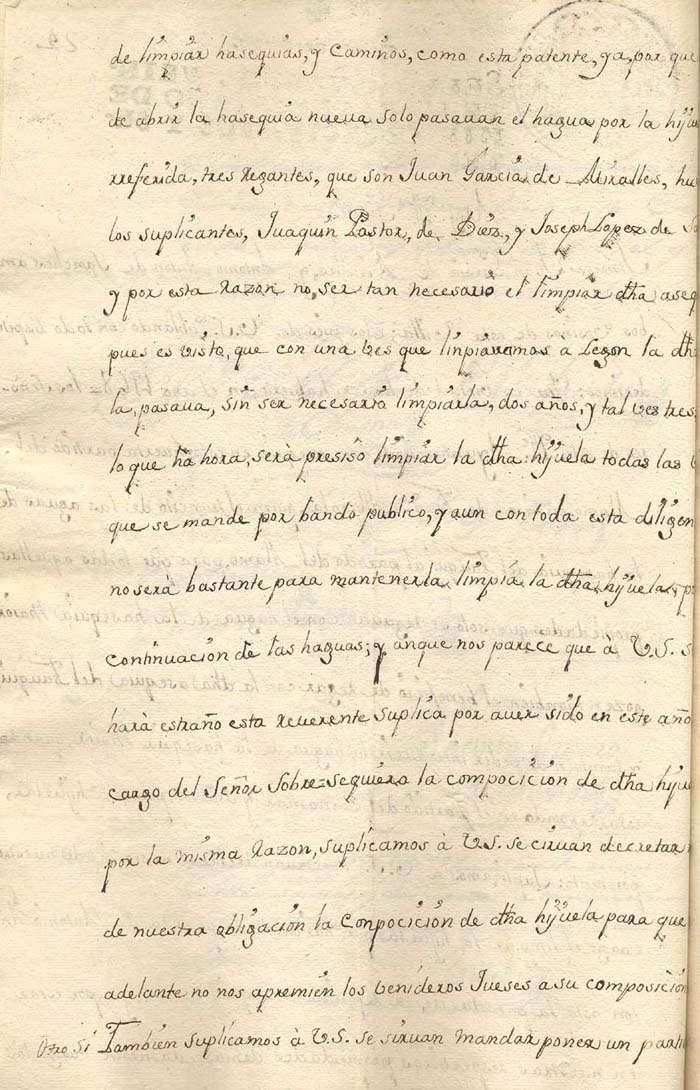 de limpiar hasequias, y Caminos, como esta patente, ya, por que
de abrir la hasequia nueva solo pasavan el hagua por la hiju
rreferida, tres regantes, que son Juan Garcia de Miralles, hu
los suplicantes, Juaquin Pastor, de Diez, y Joseph Lopez de
y por esta Razon no, ser tan necesario el limpiar dha aseq
pues es visto, que con una ves que linpiavamos a la dh
la, pasava, sin ser necesario limpiarla, dos años, y tal ves tres
lo que ha hora, serà presiso limpiar la dha hijuela todas las
que se mande por bando publico, y aun con toda esta diligen
no serà bastante para mantenerla limpia la dha hijuela, p
continuacion de las haguas; y anque nos parece que à V.S. s
harà estraño esta reverente suplica por aver sido en este año
cargo del Señor Sobresequiero la composicion de dha hiju
por la misma Razon, suplicamos à V.S. se sirvan decretar
de nuestra obligacion la conpocicion de dha hijuela para que
adelante no nos apremien los venideros Jueses a su composicion
Otro Si Tambien suplicamos à V.S. se sirvan mandar poner un part